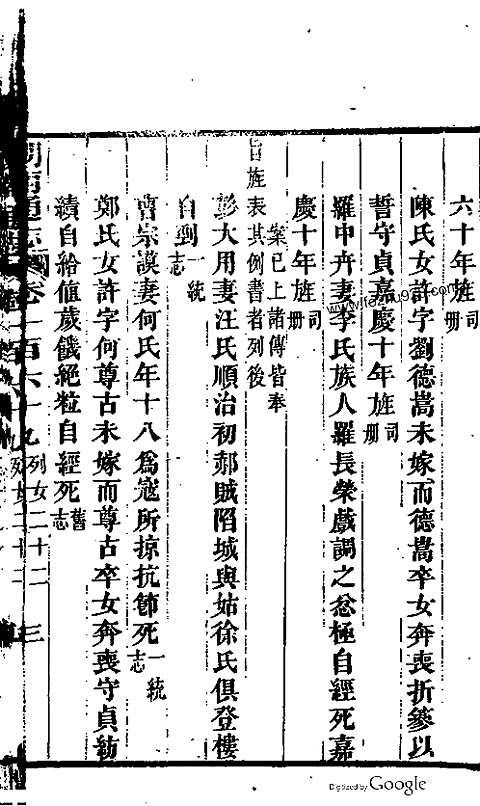 六十年旌司册
陳氏女許字劉德嵩未嫁而德嵩卒女奔喪折篸以
誓守貞嘉慶十年旌司册
羅中卉妻李氏族人羅長榮戲調之忿極自經死嘉
慶十年旌司册
案已上諸傳皆奉
旨旌表其例書者列後
彭大用妻汪氏順治初郝賊陷城與姑徐氏俱登樓
自剄一統志
曹宗謨妻何氏年十八為寇所掠抗節死一統志
鄭氏女許字何尊古未嫁而尊古卒女奔喪守貞紡
績自給値歲饑絕粒自經死舊志
卷一百六十九 列女二十二 三
www.fozu98.com
Digitized by Google